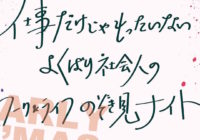 仕事だけじゃもったいない
よくばり社会人の
ワーク&ライフのぞき見ナイト